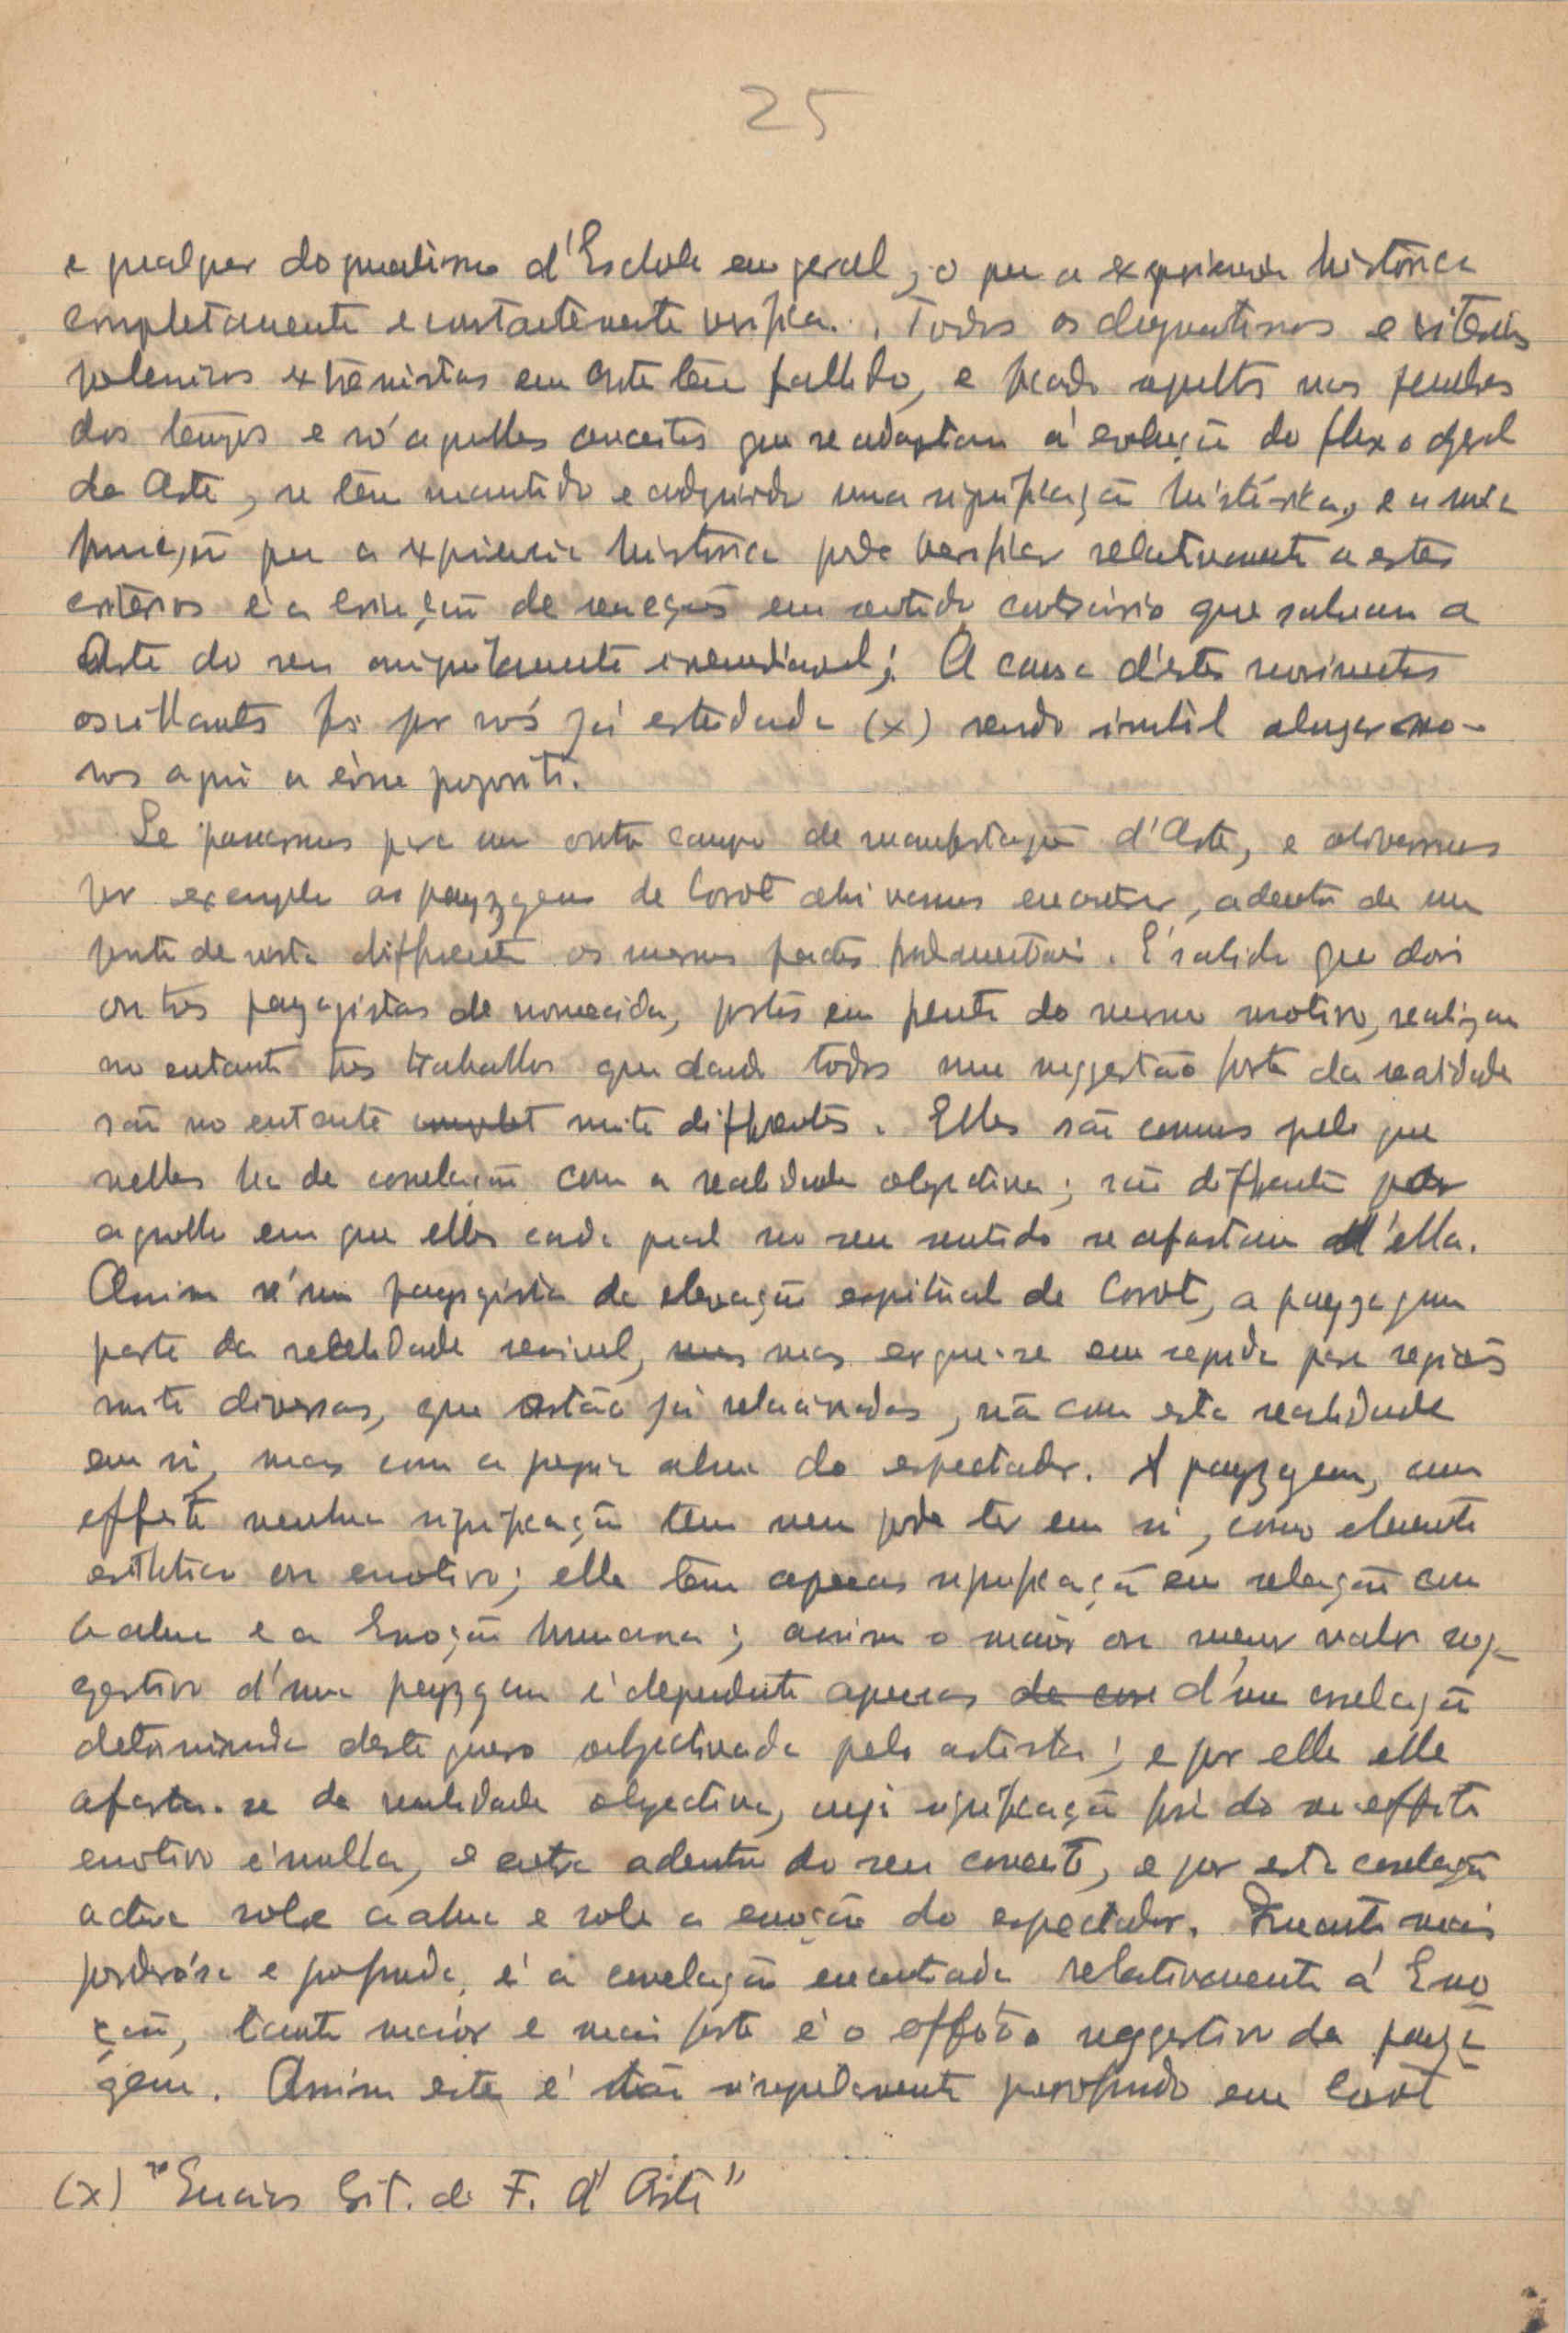 25
e qualquer dogmatismo d'Eschola em geral, o que a experiencia historica
completamente e constantemente verifica. Todos os dogmatismos e criterios
polemicos extremistas em Arte têm falhado, e ficado sepultos nas
dos tempos e só aquelles conceitos que se adaptam á evolução do fluxo geral
da Arte, se têm mantido e adquirido uma significação historica, e a unica
funcção que a experiencia historica pode verificar relativamente a estes
criterios é a creação de reacções em sentido contrario que salvam a
Arte do seu aniquilamento irremediavel; A causa d'estes movimentos
oscillantes foi por nós já estudada (x) sendo inutil alongarmo-
nos aqui a êsse proposito.
Se passarmos para um outro campo de manifestação d'Arte, e observarmos
por exemplo as payzagens de Corot ahi vamos encontrar, adentro de um
ponto de vista differente os mesmos factos fundamentaes. É sabido que dois
ou tres payzagistas de nomeada, postos em frente do mesmo motivo, realizam
no entanto tres trabalhos que dando todos uma suggestão forte da realidade
são no entanto muito differentes. Elles são comuns pelo que
nelles ha de correlação com a realidade objectiva; são differentes por
aquello em que elles cada qual no seu sentido se afastam d'ella.
Assim n'um payzagista da elevação espiritual de Corot, a payzagem
parte da realidade sensivel, mas ergue-se em seguida para regiões
muito diversas, que estão já relacionadas, não com esta realidade
em si, mas com a propria alma do espectador. A payzagem, com
effeito nenhuma significação tem nem pode ter em si, como elemento
esthetico ou emotivo; ella tem apenas significação em relação com
a alma e a Emoção humana; assim o maior ou menor valor sug-
gestivo d'uma payzagem é dependente apenas d'uma correlação
determinada deste genero objectivada pelo artista; e por ella elle
afasta-se da realidade objectiva, cuja significação fóra do seu effeito
emotivo é nulla, e entra adentro do seu conceito, e por esta correlação
actua sobre a alma e sobre a emoção do espectador. Quanto mais
poderósa e profunda, é a correlação encontrada relativamente á Emo
ção, tanto maiór e mais forte é o effeito suggestivo da payza
gem. Assim este é tão singularmente profundo em Corot
(x) "Ensaios Crit. de F. d'Arte"